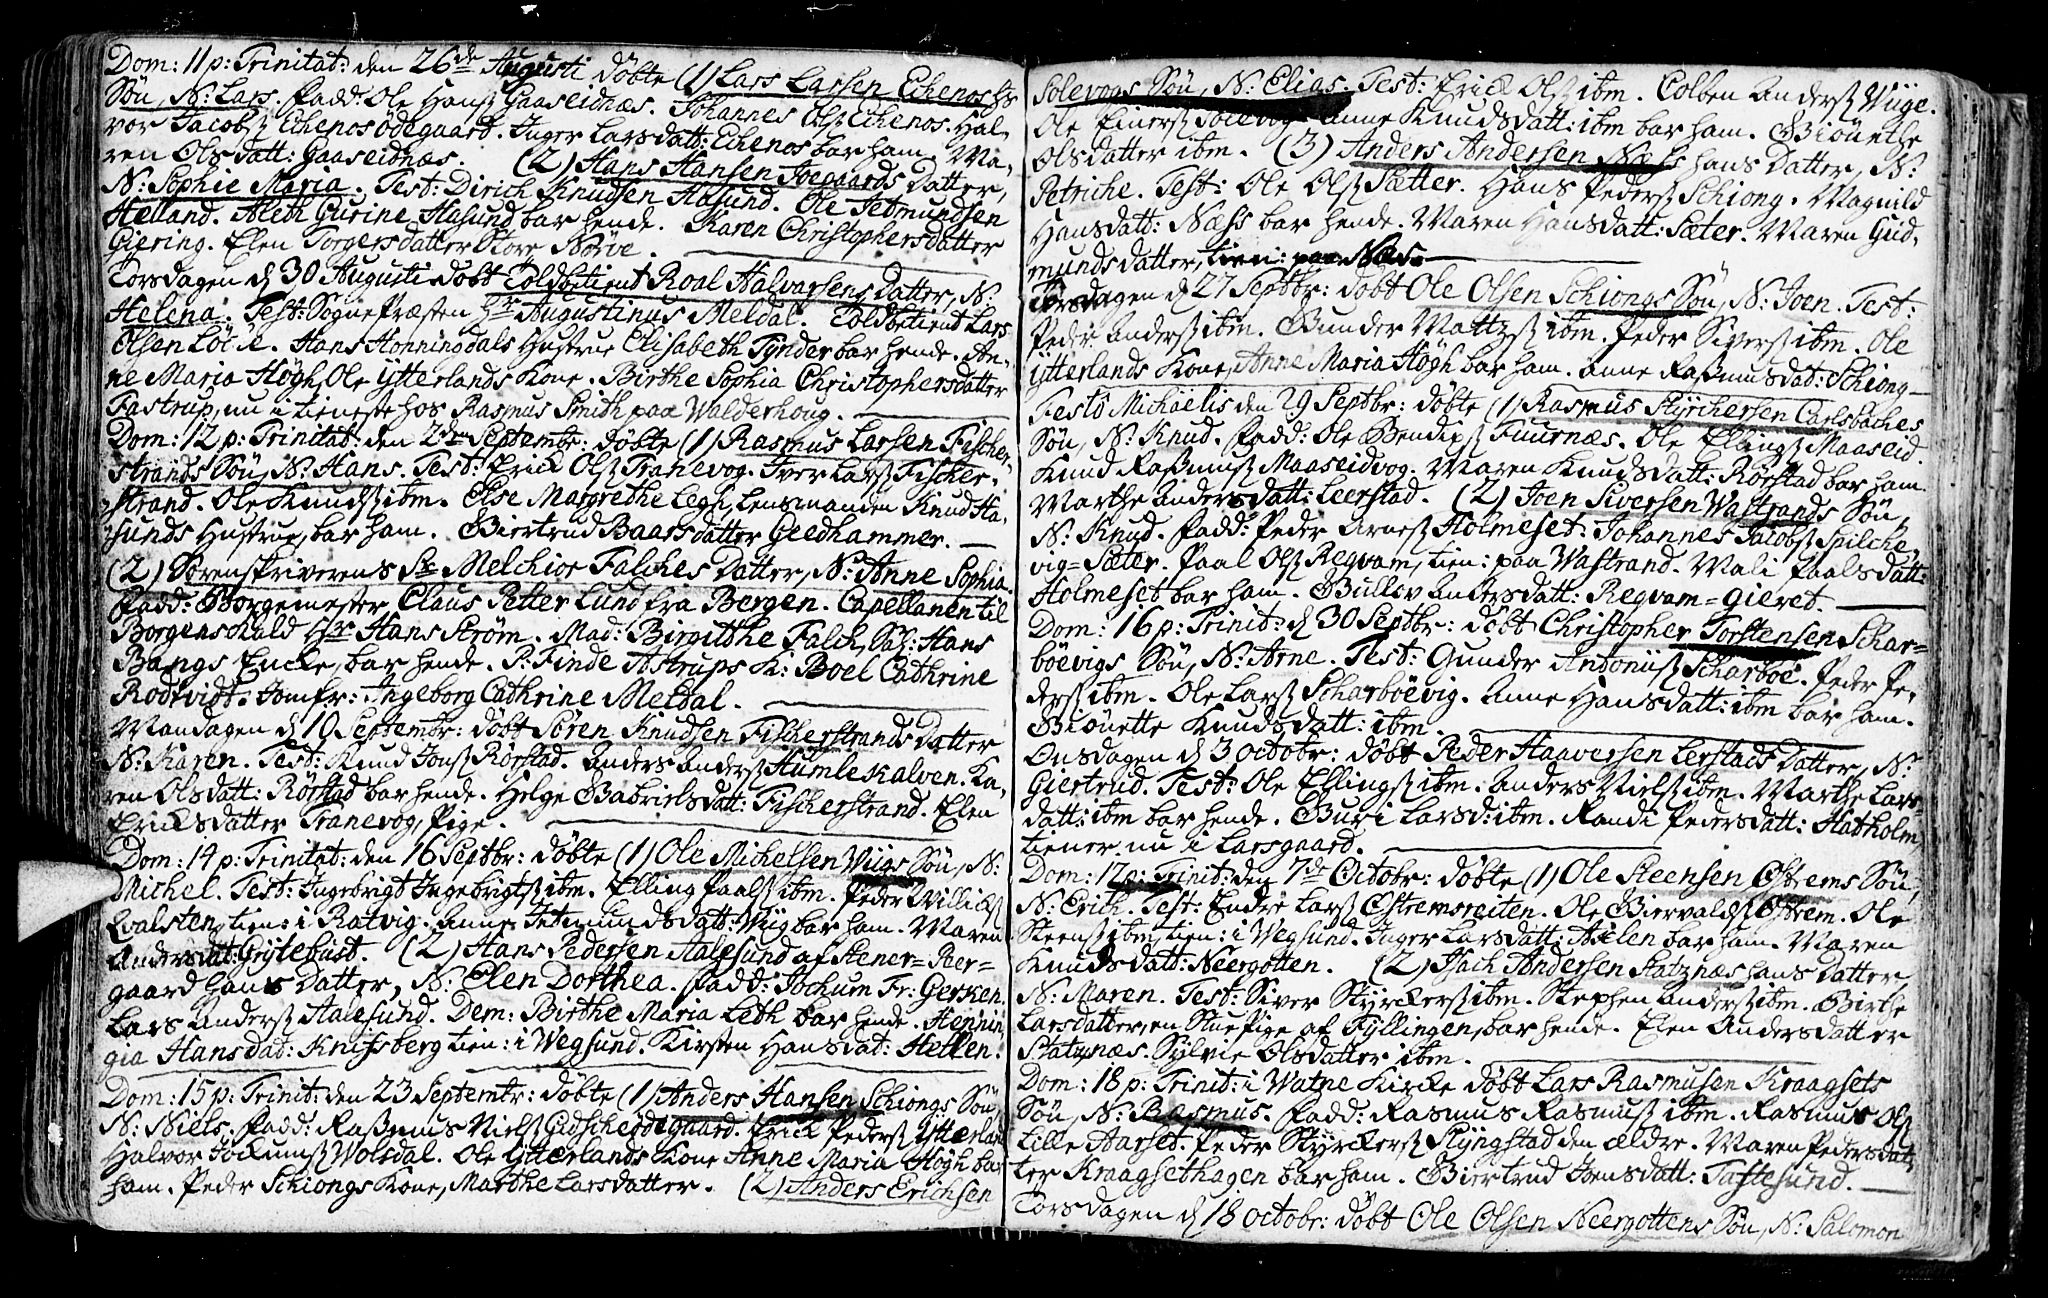 Dom: 11 p: Trinitat: den 26de Augusti döbte (1) Lars Larsen Echenos
Sön, N: Lars. Fadd: Ole Hanss Gaaseidnæs. Johannes Olss Echenos. Hal-
vor Jacobss Echenos ödegaard. Inger Larsdatt: Echenos bar ham. Ma-
ren Olsdatt: Gaaseidnæs. (2) Hans Hansen Toegaards Datter,
N: Sophie Maria. Test: Dirich Knudsen Hasund. Ole Jetmundsen
Helland. Aleth Gurine Hasund bar hende. Karen Christophersdatter
Giering. Elen Torgersdatter Store Nörve.
Torsdagen d 30 Augusti döbt Toldbetient Roal Halvarsens Datter, N:
Helena. Test: SognePræsten Hr Augustinus Meldal. Toldbetient Lars
Olsen Löche. Hans Honningdals Hustrue Elisabeth Tynder bar hende. An-
ne Maria Högh, Ole Ytterlands Kone. Birthe Sophia Christophersdatter
Fastrup, nu i tieneste hos Rasmus Smith paa Walderhoug.
Dom: 12 p: Trinitat: den 2den Septembr: döbte (1) Rasmus Larsen Fischer-
strands Sön, N: Hans. Test: Erick Olss Tranevog. Iver Larss Fischer-
strand. Ole Knudss ibm. Else Margrethe Legh, Lensmanden Knud Ha-
sunds Hustrue, bar ham. Giertrud Baarsdatter Geedhammer.
(2) Sorenskriverens Sr Melchior Falches Datter, N: Anne Sophia.
Fadd: Borgemester Claus Petter Lund fra Bergen. Capellanen til
Borgensund Hr Hans Ström. Mad: Birgitthe Falch, Sal: Hans
Bangs Encke, bar hende. P: Finde Astrups K: Boel Cathrine
Rodtvidt. Jomfr: Ingeborg Cathrine Meldal.
Mandagen d 10 Septembr: döbt Sören Knudsen Fischerstrands Datter
N: Karen. Test: Knud Jonss Rörstad. Anders Anderss Humlekalven. Ka-
ren Olsdatt: Rörstad bar hende. Helge Gabrielsdatt: Fischerstrand. Elen
Ericksdatter Tranevog, Pige.
Dom: 14 p: Trinitat: den 16 Septbr: döbte (1) Ole Michelsen Wiigs Sön, N:
Michel. Test: Ingebrigt Ingebrigtss ibm. Elling Paalss ibm. Peder Willickss
Qvalsten, tien: i Ratvig. Anne Jetmundsdatt: Wiig bar ham. Maren
Andersdat: Gryteböst. (2) Hans Pedersen Aalesund af Stener-Peer-
gaard hans Datter, N: Elen Dorthea. Fadd: Jochum Fr: Gerken.
Lars Anderss Aalesund. Dem: Birthe Maria Leth bar hende. Hennin-
gia Hansdat: Knifsberg tien: i Wegsund. Kirsten Hansdat: Hellen.
Dom: 15 p: Trinit: den 23 Septembr: döbte (1) Anders Hansen Schiongs Sön,
N: Niels. Fadd: Rassmus Nielss Gidscherödegaard. Erick Pederss Ytterland
Halvor Jockumss Wolsdal. Ole Ytterlands Kone Anne Maria Högh bar
ham. Peder Schiongs Kone, Marthe Larsdatter. (2) Anders Erichsen
Solevogs Sön, N: Elias. Test: Erick Olss ibm. Colben Anderss Wiige.
Ole Einerss Solevog. Anne Knudsdatt: ibm bar ham. Giöunthe
Olsdatter ibm. (3) Anders Andersen Næss hans Datter, N:
Petriche. Test: Ole Olss Sætter. Hans Pederss Schiong. Magnild
Hansdatt: Næss bar hende. Maren Hansdatt: Sæter. Maren Gud-
mundsdatter, tien: paa Næs.
Torsdagen d 27 Septbr: döbt Ole Olsen Schiongs Sön, N: Joen. Test:
Peder Anderss ibm. Gunder Mattzss ibm. Peder Siverss ibm. Ole
Ytterlands Kone, Anne Maria Högh bar ham. Anne Rassmusdat: Schiong
Festo Michaelis den 29 Septbr: döbte (1) Rasmus Styrchersen Carlsbaches
Sön, N: Knud. Fadd: Ole Bendixss Fuurnæs. Ole Ellingss Maaseid.
Knud Rassmuss Maaseidvog. Maren Knudsdatt: Rörstad bar ham.
Marthe Andersdatt: Leerstad. (2) Joen Siversen Wastrands Sön,
N: Knud. Fadd: Peder Arness Holmeset. Johannes Jacobss Spilche-
vig-Sæter. Paal Olss Reqvam, tien: paa Wastrand. Mali Paalsdatt:
Holmeset bar ham. Gullov Andersdatt: Reqvam-gieret.
Dom: 16 p: Trinit: d 30 Septbr: döbt Christopher Torstensen Schar-
böevigs Sön, N: Arne. Test: Gunder Antoniss Scharböe. Peder Pe-
derss ibm. Ole Larss Scharböevig. Anne Hansdatt: ibm bar ham.
Giöuette Knudsdatt: ibm.
Onsdagen d 3 Octobr: döbt Peder Haaversen Lerstads Datter, N:
Giertrud. Test: Ole Ellingss ibm. Anders Nielss ibm. Marthe Lars-
datt: ibm bar hende. Guri Larsd: ibm. Randi Pedersdatt: Hatholm
tiener nu i Larsgaard.
Dom: 17 p: Trinit: den 7de Octobr: döbte (1) Ole Steensen Östrems Sön,
N: Erich. Test: Endre Larss Östremsreiten. Ole Giervaldss Östrem. Ole
Steenss ibm, tien: i Wegsund. Inger Larsdatt: Aselen bar ham. Maren
Knudsdatt: Neergotten. (2) Isach Andersen Statznæs hans Datter,
N: Maren. Test: Siver Styrckerss ibm. Stephen Anderss ibm. Birthe
Larsdatter, en Stuepige af Fyllingen, bar hende. Elen Andersdatter
Statznæs. Sylvie Olsdatter ibm.
Dom: 18 p: Trinit: i Watne Kircke döbt Lars Rasmusen Kraagsets
Sön, N: Rasmus. Fadd: Rasmus Rasmuss ibm. Rasmus Olss
Lille Aarset. Peder Styrckerss Slyngstad den ældre. Maren Pedersdat-
ter Kraagsethagen bar ham. Giertrud Jonsdatt: Taftesund.
Torsdagen d 18 Octobr: döbt Ole Olsen Neergottens Sön, N: Salomon